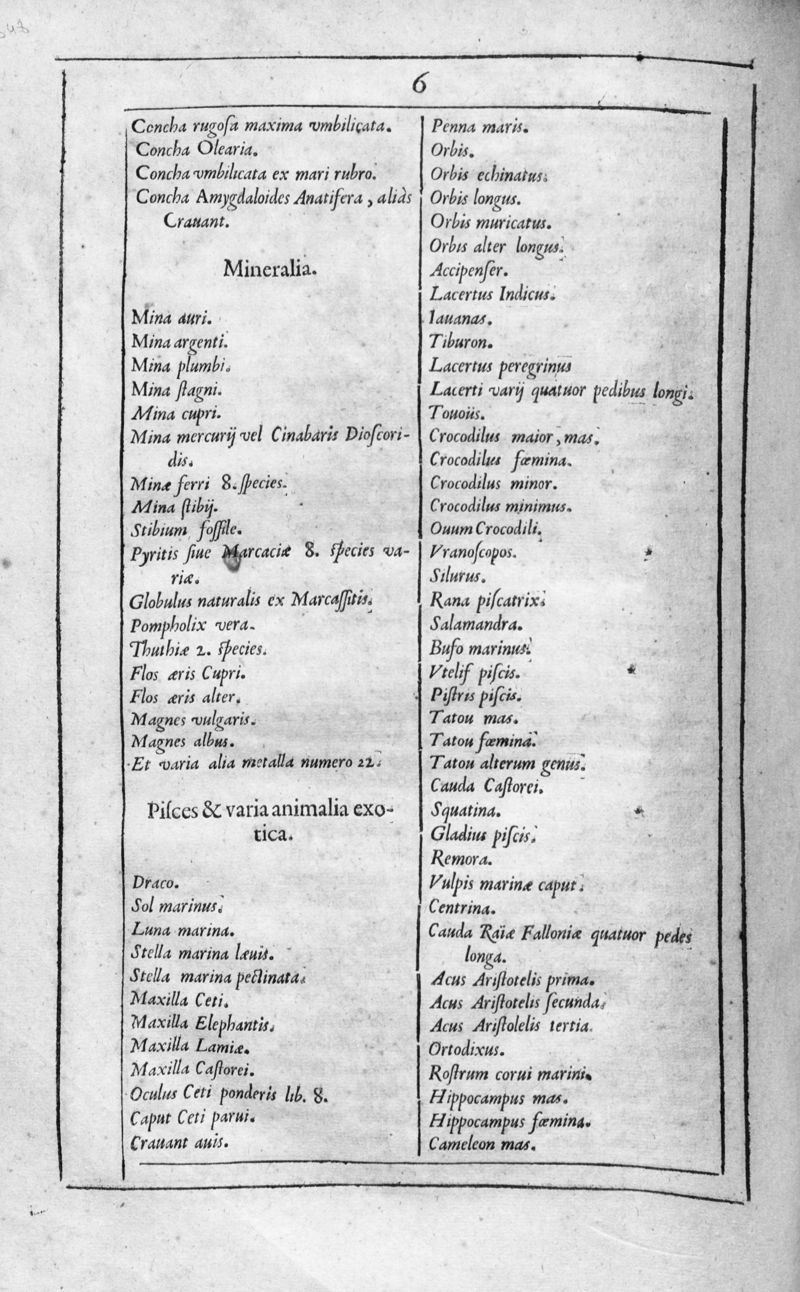 6
Concha rugoſa maxima vmbilicata.
Concha Olearia.
Concha vmbilicata ex mari rubro.
Concha Amygdaloides Anatifera, aliàs
Crauant.
Mineralia.
Mina auri.
Mina argenti.
Mina plumbi.
Mina ſtagni.
Mina cupri.
Mina mercurij vel Cinabaris Dioſcori-
dis.
Minæ ferri 8. ſpecies.
Mina ſtibij.
Stibium foſſile.
Pyritis ſiue Marcaciæ 8. ſpecies va-
riæ.
Globulus naturalis ex Marcaſſitis.
Pompholix vera.
Thuthiæ 2. ſpecies.
Flos æris Cupri.
Flos æris alter.
Magnes vulgaris.
Magnes albus.
Et varia alia metalla numero 22.
Piſces & varia animalia exo-
tica.
Draco.
Sol marinus.
Luna marina.
Stella marina læuis.
Stella marina pectinata.
Maxilla Ceti.
Maxilla Elephantis.
Maxilla Lamiæ.
Maxilla Caſtorei.
Oculus Ceti ponderis lib. 8.
Caput Ceti parui.
Crauant auis.
Penna maris.
Orbis.
Orbis echinatus.
Orbis longus.
Orbis muricatus.
Orbis alter longus.
Accipenſer.
Lacertus Indicus.
Iauanas.
Tiburon.
Lacertus peregrinus
Lacerti varij quatuor pedibus longi.
Touoüs.
Crocodilus maior, mas.
Crocodilus fœmina.
Crocodilus minor.
Crocodilus minimus.
Ouum Crocodili.
Vranoſcopos.
Silurus.
Rana piſcatrix.
Salamandra.
Bufo marinus.
Vtelif piſcis.
Piſtris piſcis.
Tatou mas.
Tatou fœmina.
Tatou alterum genus.
Cauda Caſtorei.
Squatina.
Gladius piſcis.
Remora.
Vulpis marinæ caput.
Centrina.
Cauda Raïæ Falloniæ quatuor pedes
longa.
Acus Ariſtotelis prima.
Acus Ariſtotelis ſecunda.
Acus Ariſtolelis tertia.
Ortodixus.
Roſtrum corui marini.
Hippocampus mas.
Hippocampus fœmina.
Cameleon mas.